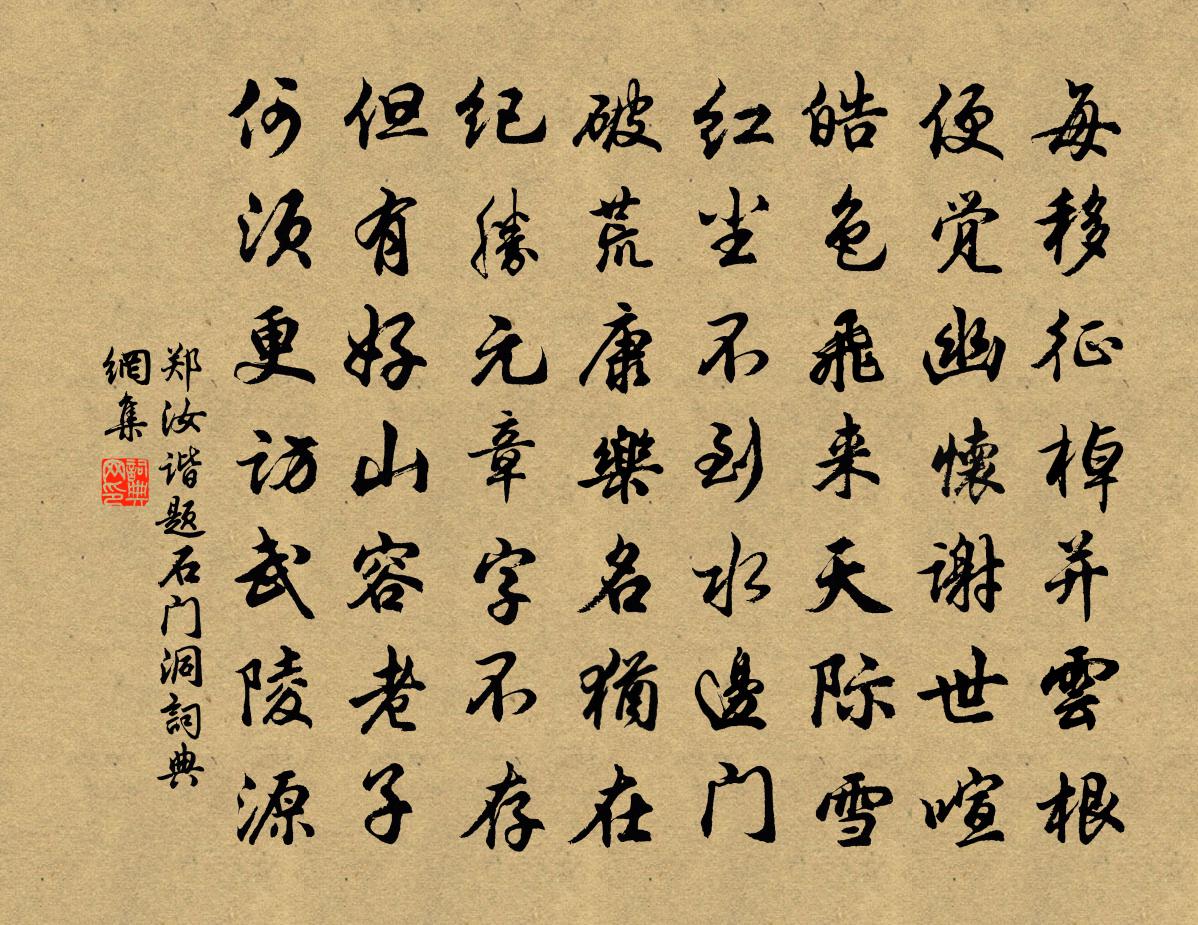 每移征棹并雲根
便觉幽懷谢世喧
皓色飛来天际雪
红尘不到水邊门
破荒康樂名猶在
纪勝元章字不存
但有好山容老子
何须更访武陵源
郑汝谐题石门洞詞典
網集
詞典网印